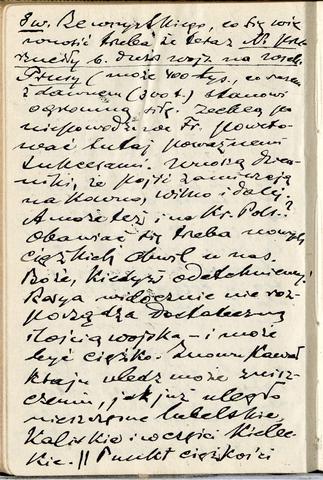 św. Benwyskiego, co się wie
nosić trzeba że teraz N. prze
rzuciły b. dużo wojsk na
Prusy (może 400 tys., co razem
z dawnem (300 t.) stanowi
ogromną siłę. Zechcą po
niepowodz. we Fr. poweto-
wać tutaj poważnemi
sukcesami. Wnoszą dzien-
niki, że pójść zamierzają
na Kowno, Wilno i dalej?
A może też i na Kr. Pols.?
Obawiać się trzeba nowych
ciężkich chwil u nas.
Boże, kiedyż odetchniemy!
Rosya widocznie nie roz-
porządza dostateczną
ilością wojska, – i może
być ciężko. Znowu kawał
kraju uledz może znisz-
czeniu, jak już uległo
nieszczęsne lubelskie,
Kaliskie i w części Kielec-
kie. || Punkt ciężkości